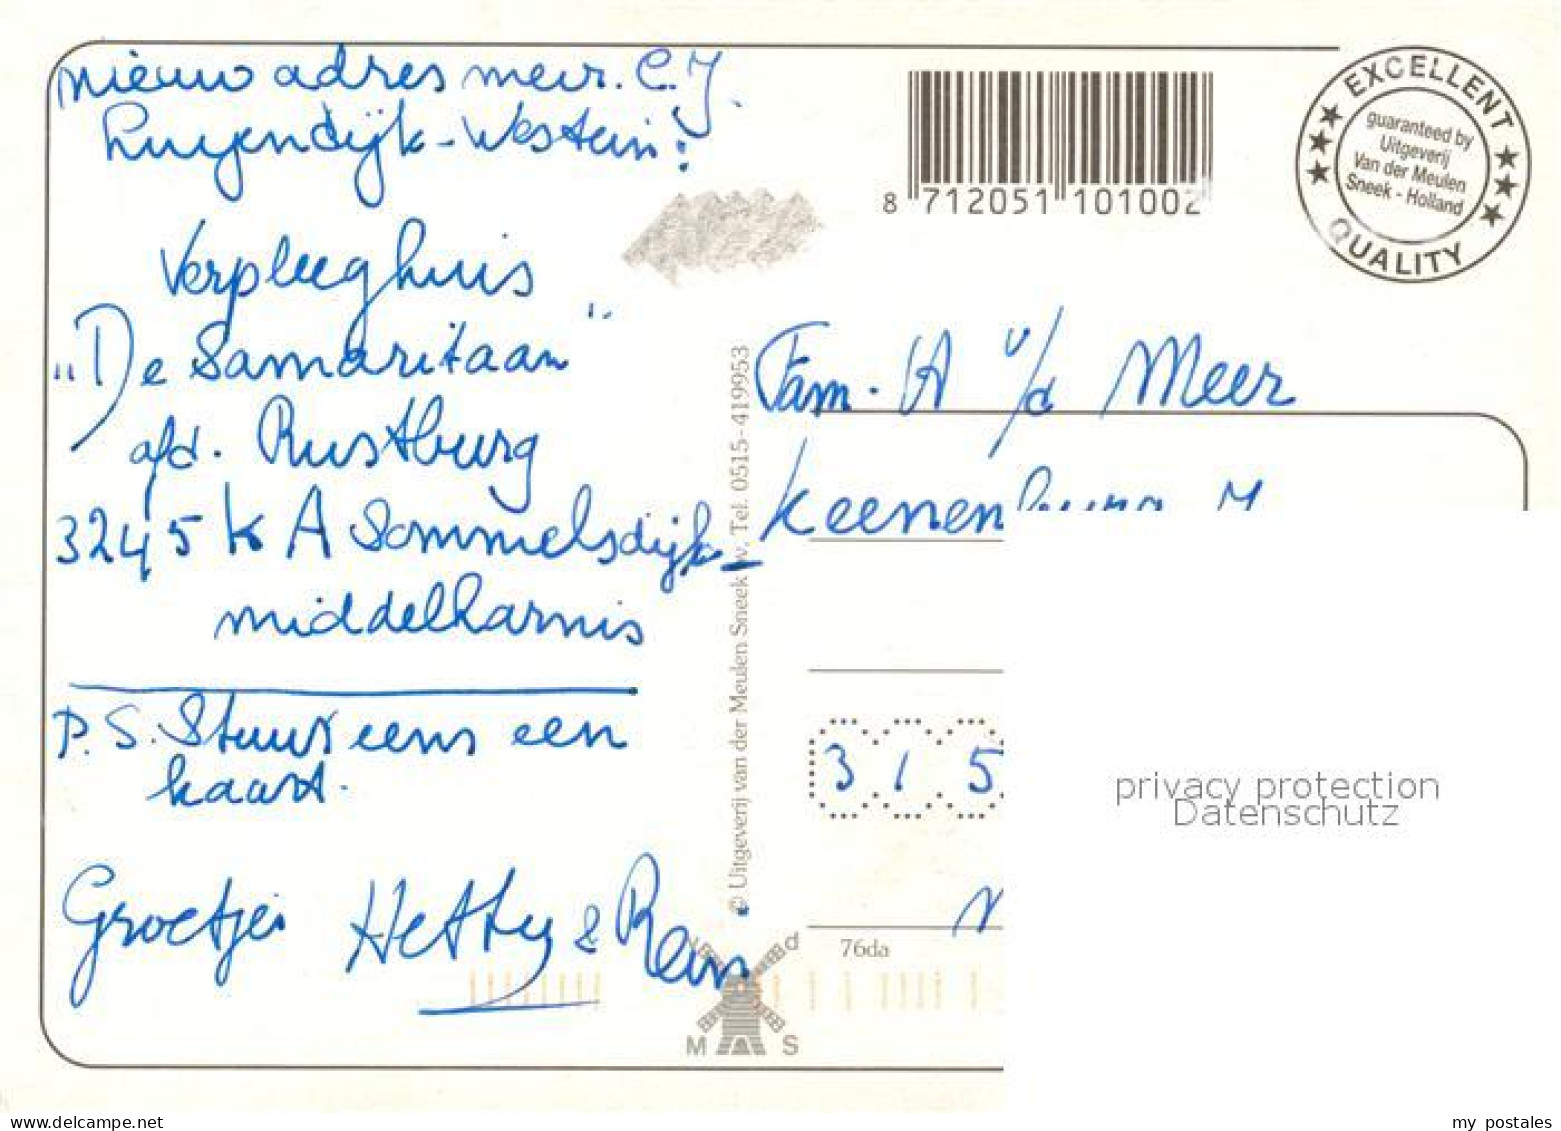 nieuw adres mevr. C.J.
Luyendijk-Westein:
Verpleeghuis
"De Samaritaan"
afd. Rustburg
3245 KA Sommelsdijk-
middelharnis
P.S. Stuur eens een
kaart.
Groetjes Hetty & Rein
8 712051 101002
EXCELLENT
guaranteed by
Uitgeverij
Van der Meulen
Sneek - Holland
QUALITY
© Uitgeverij van der Meulen Sneek Tel. 0515-419953
Fam. A v/d Meer
3 1 5
76da
M S
privacy protection
Datenschutz
www.delcampe.net
my_postales